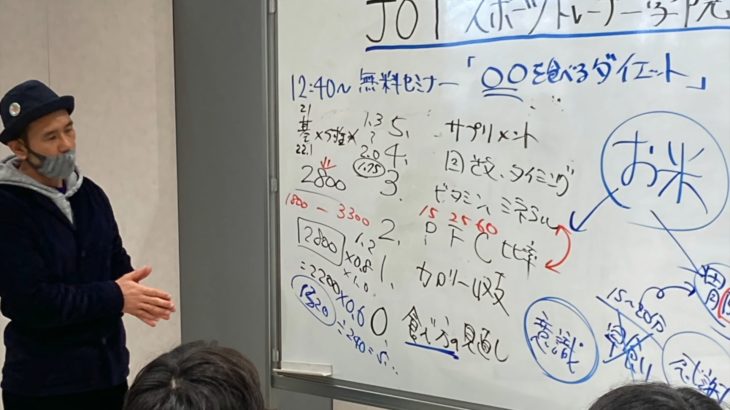 JOTスポーツトレーナー学院
12:40～ 無料セミナー「〇〇を食べるダイエット」
21
22.1
1.3
2.0
1.75
2800
1800 - 3300
2800
1.2
×0.8
×1.0
2200×0.6
1320
÷240=5.
5. サプリメント
4. 回数、タイミング
3. ビタミン ミネラル
15 25 60
2. P F C 比率
1. カロリー収支
0 食べ方の見直し
お米
意識
15～20分
早食い
感謝